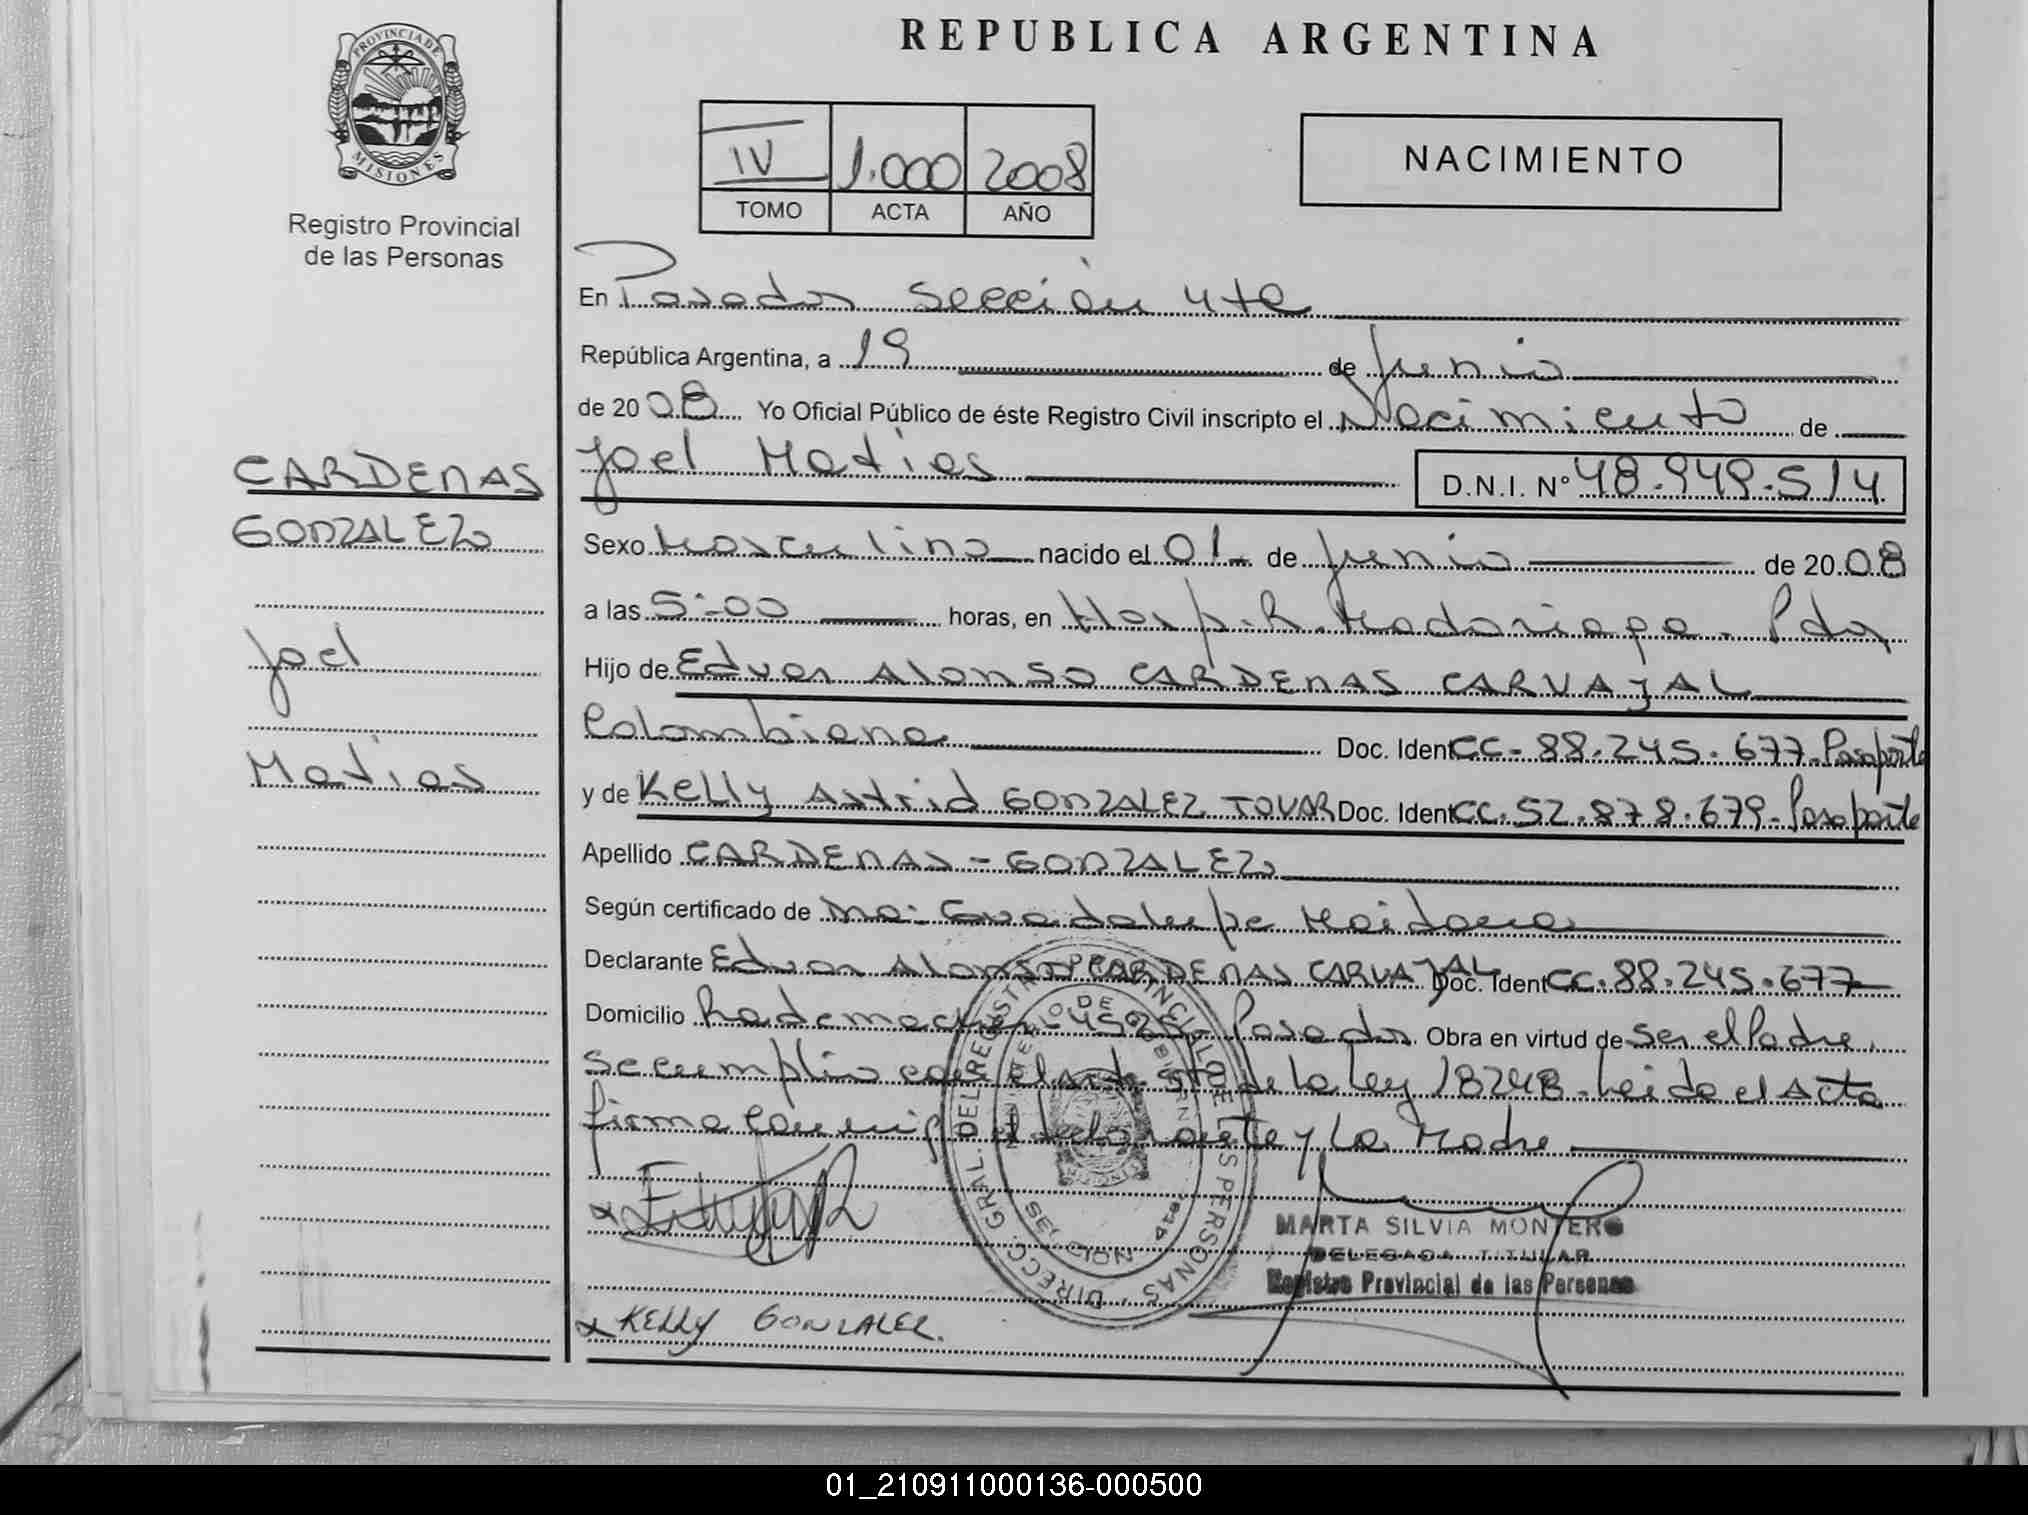 REPUBLICA ARGENTINA
PROVINCIA DE MISIONES
Registro Provincial
de las Personas
IV 1.000 2008
TOMO ACTA AÑO
NACIMIENTO
En Posadas Sección 4ta
República Argentina, a 19 de Junio
de 2008 Yo Oficial Público de éste Registro Civil inscripto el Nacimiento de
Joel Matias D.N.I. Nº 48.949.514
CARDENAS
GONZALEZ
Joel
Matias
Sexo Masculino nacido el 01 de Junio de 2008
a las 5:00 horas, en Hosp. R. Madariaga. Pdas
Hijo de Eduar Alonso CARDENAS CARVAJAL
Colombiana Doc. Ident CC- 88.245.677-Pasaporte
y de Kelly Astrid GONZALEZ TOVAR Doc. Ident CC. 52.878.679-Pasaporte
Apellido CARDENAS - GONZALEZ
Según certificado de Guadalupe Maidana
Declarante Eduar Alonso CARDENAS CARVAJAL Doc. Ident CC. 88.245.677
Domicilio Rademacher Posadas Obra en virtud de Ser el Padre.
Se cumplio con el art de la Ley 18248. Leida el Acta
firma conmigo el declarante y La Madre
DIRECC. GRAL. DEL REGISTRO PROVINCIAL DE LAS PERSONAS
MARTA SILVIA MONTERO
DELEGADA TITULAR
Registro Provincial de las Personas
x KELLY GONZALEZ.
01_210911000136-000500